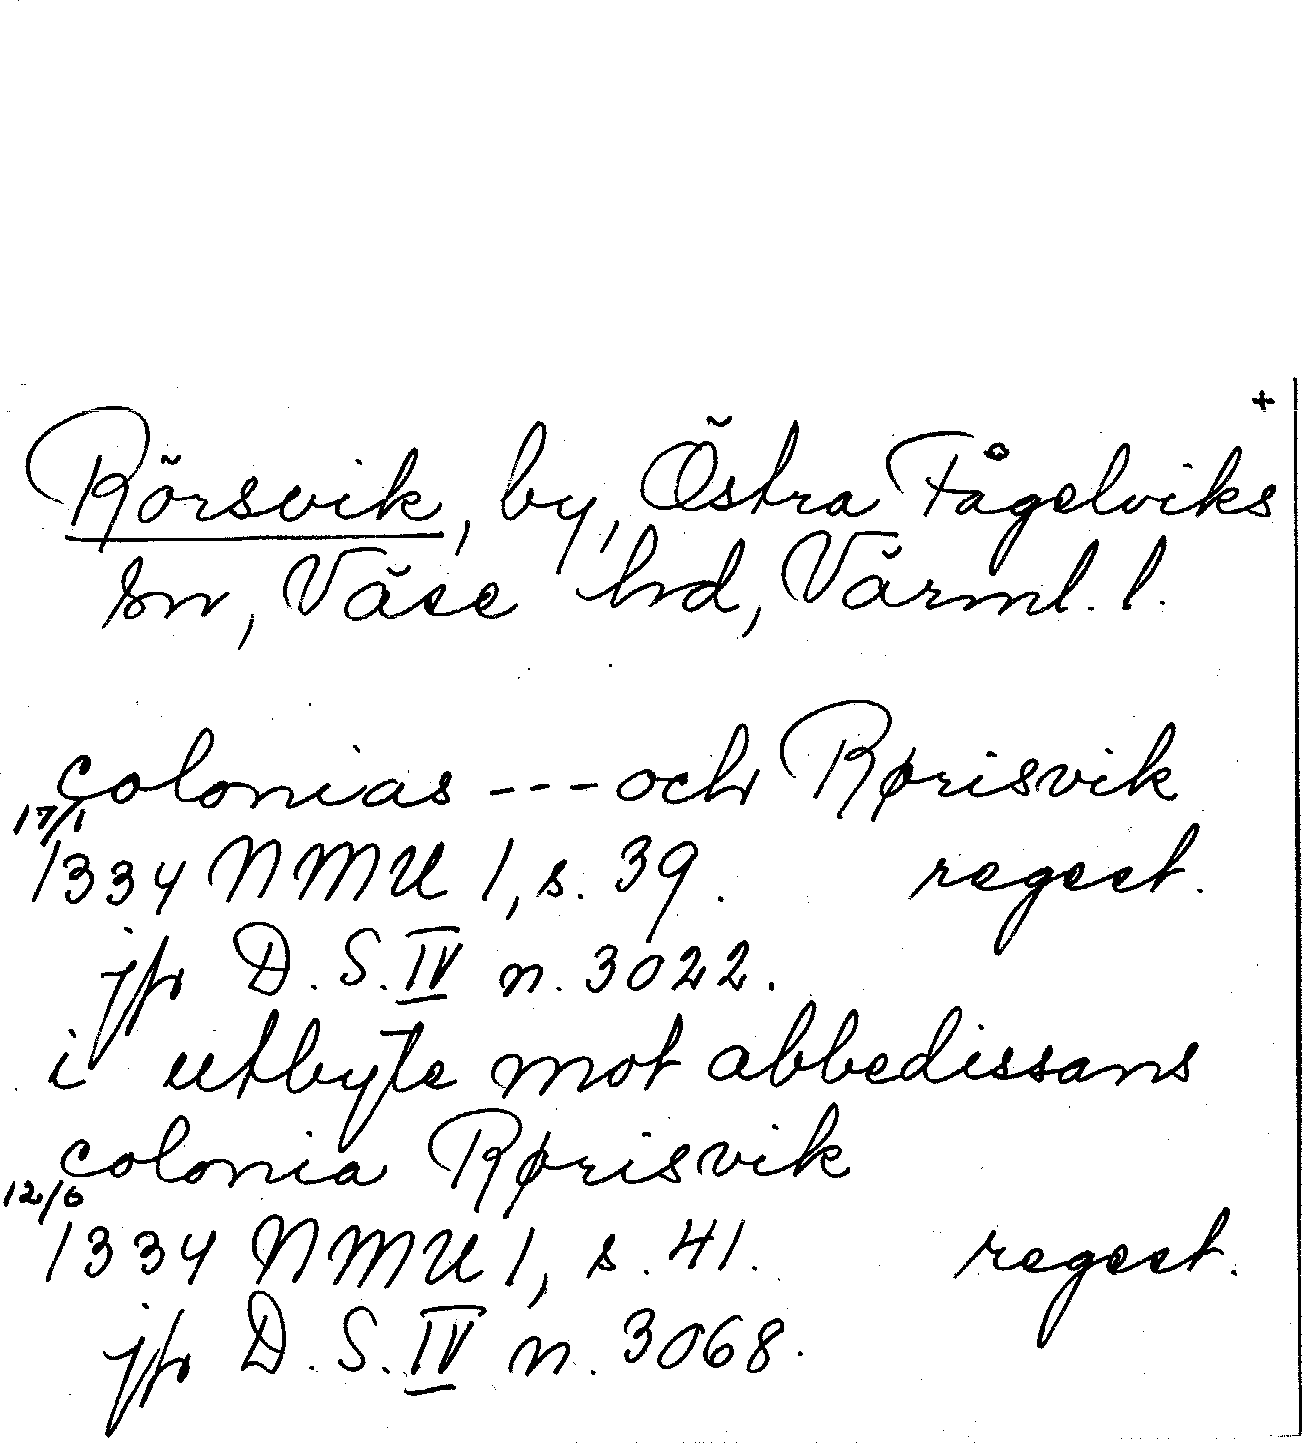 +
Rörsvik, by, Östra Fågelviks
sn, Väse hd, Värml. l.
colonias --- och Rørisvik
17/1
1334 NMU 1, s. 39. regest.
jfr D. S. IV n. 3022.
i utbyte mot abbedissans
colonia Rørisvik
12/6
1334 NMU 1, s. 41. regest.
jfr D. S. IV n. 3068.